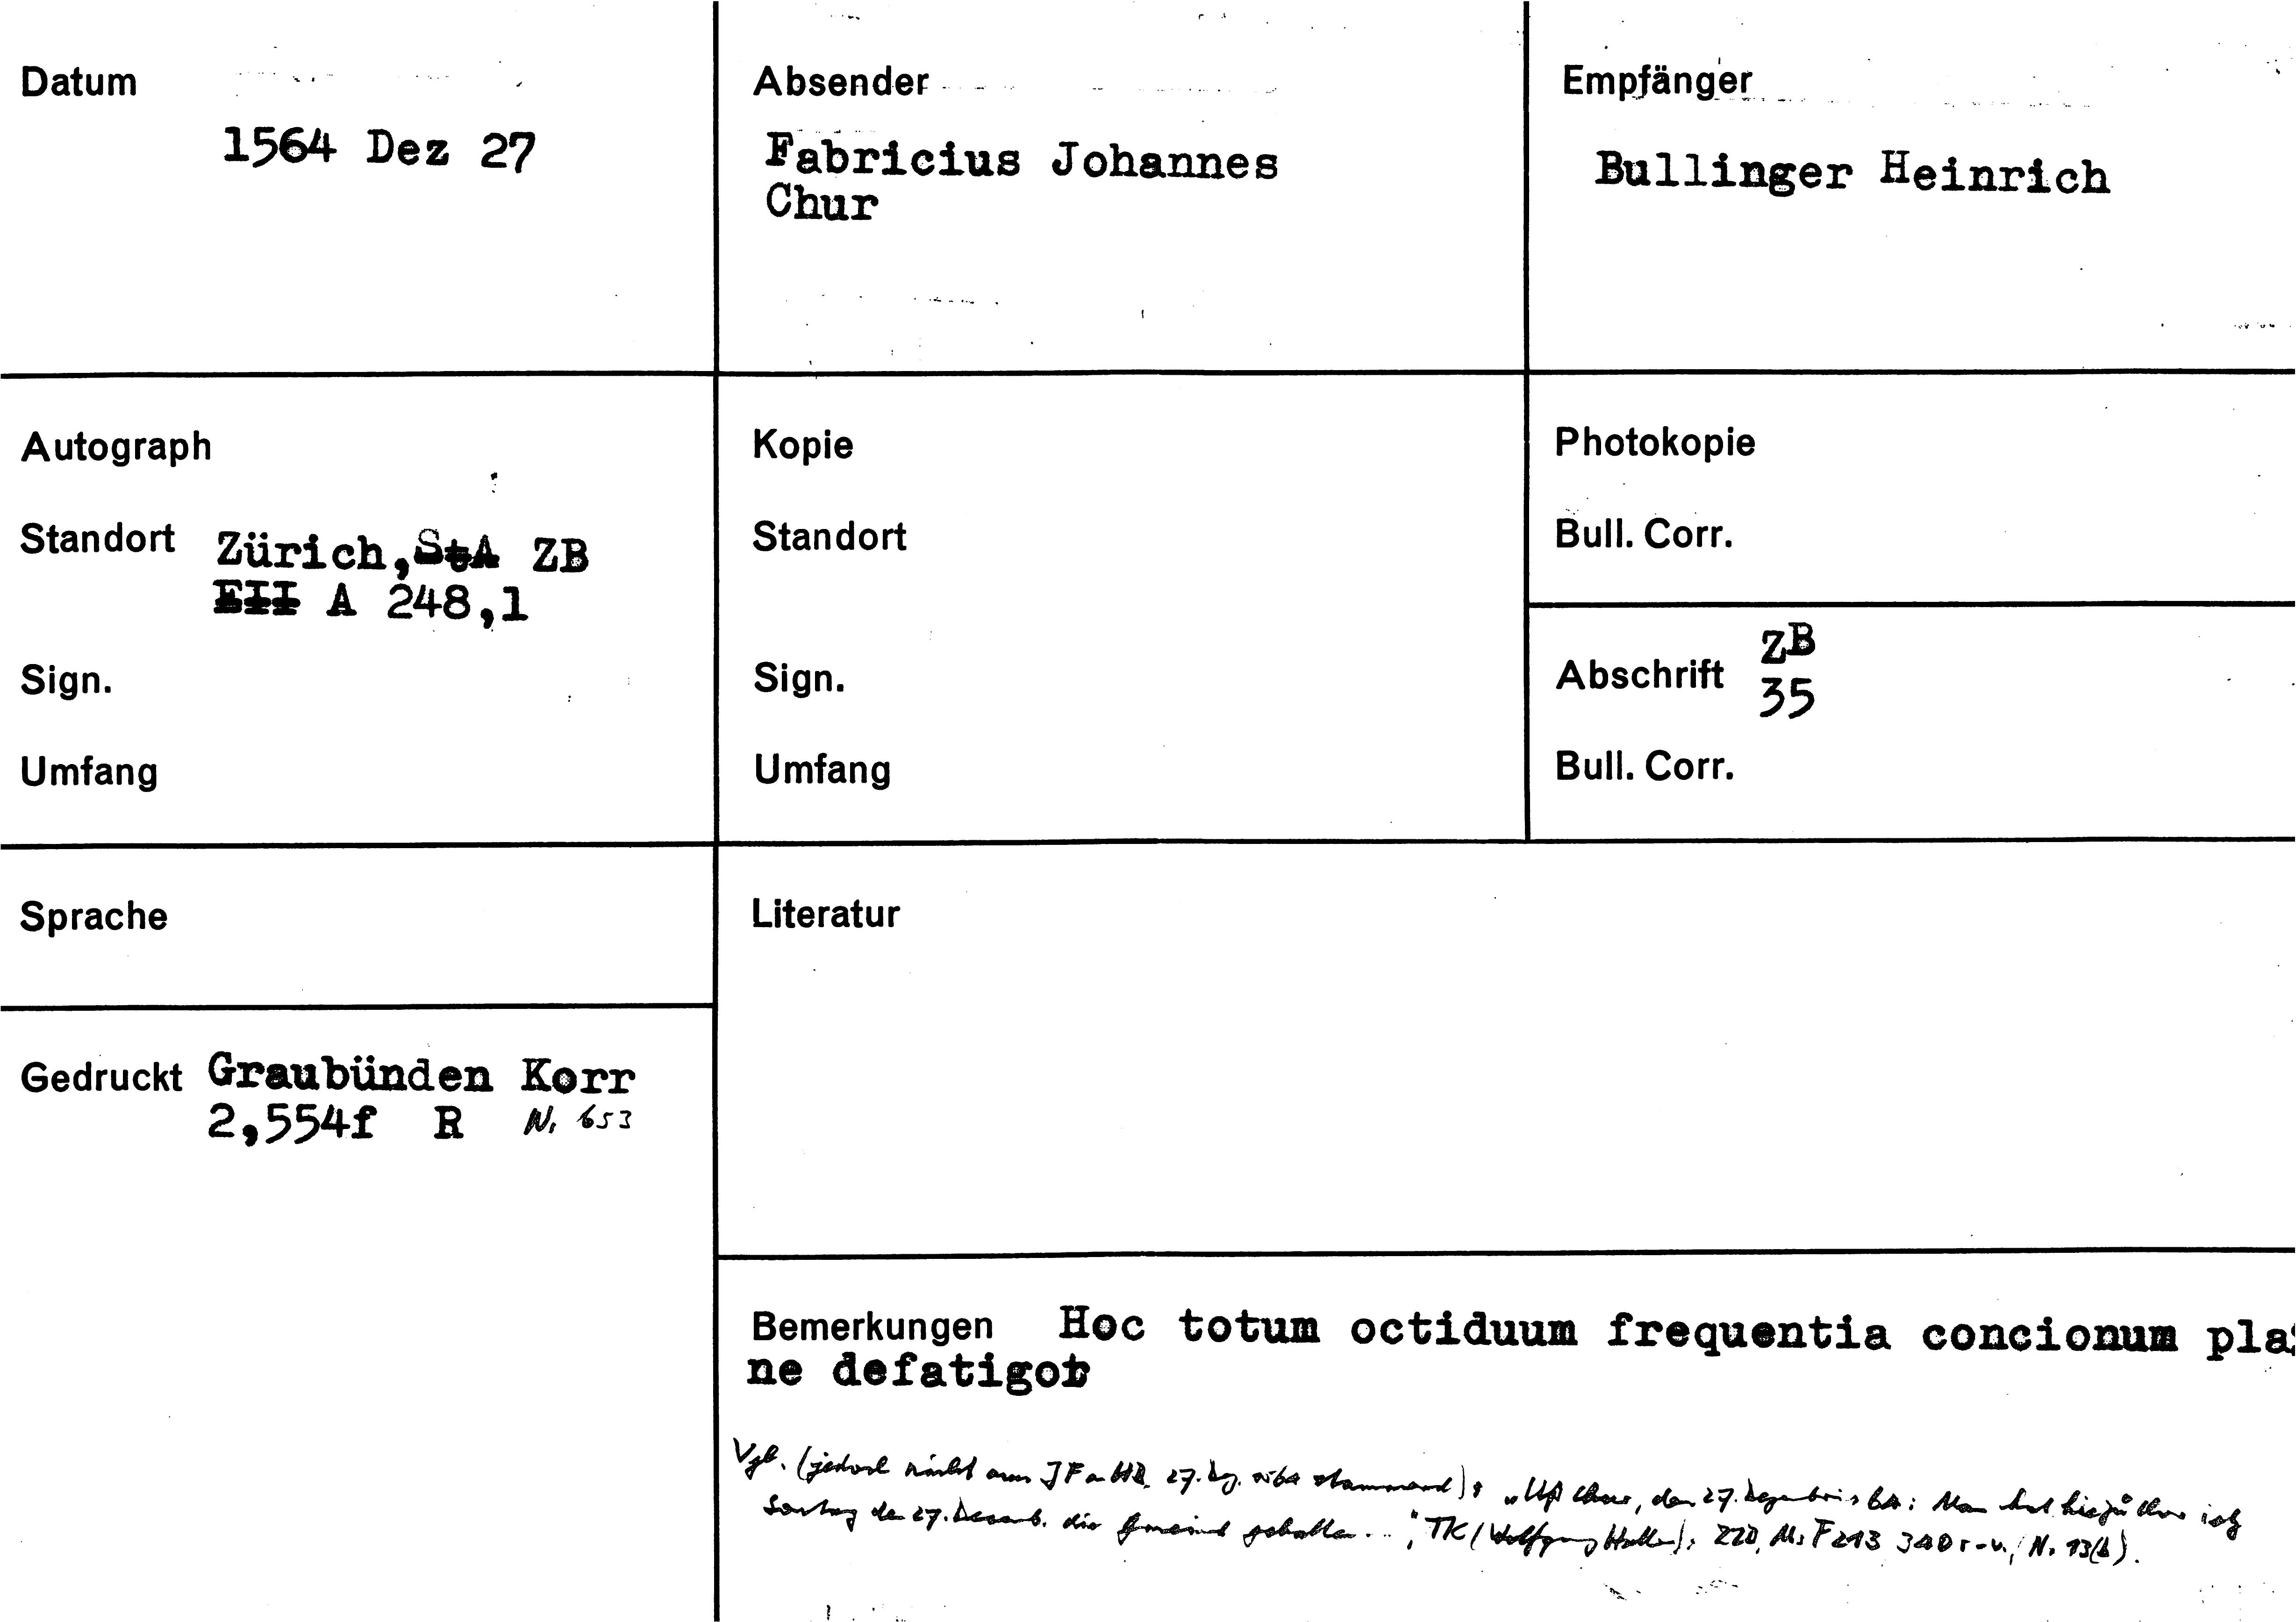 Datum
1564 Dez 27
Absender
Fabricius Johannes
Chur
Empfänger
Bullinger Heinrich
Autograph
Standort Zürich, StA ZB
EII A 248,1
Sign.
Umfang
Kopie
Standort
Sign.
Umfang
Photokopie
Bull. Corr.
Abschrift ZB
35
Bull. Corr.
Sprache
Gedruckt Graubünden Korr
2,554f R N. 653
Literatur
Bemerkungen Hoc totum octiduum frequentia concionum plai
ne defatigor
Vgl. (jedoch nicht 27. stammend): den 27. 64: Man hat
den 27. die gehalten...", TK (Wolfgang Haller), ZZB, Ms F 213 340 r-v, N. 13(b).